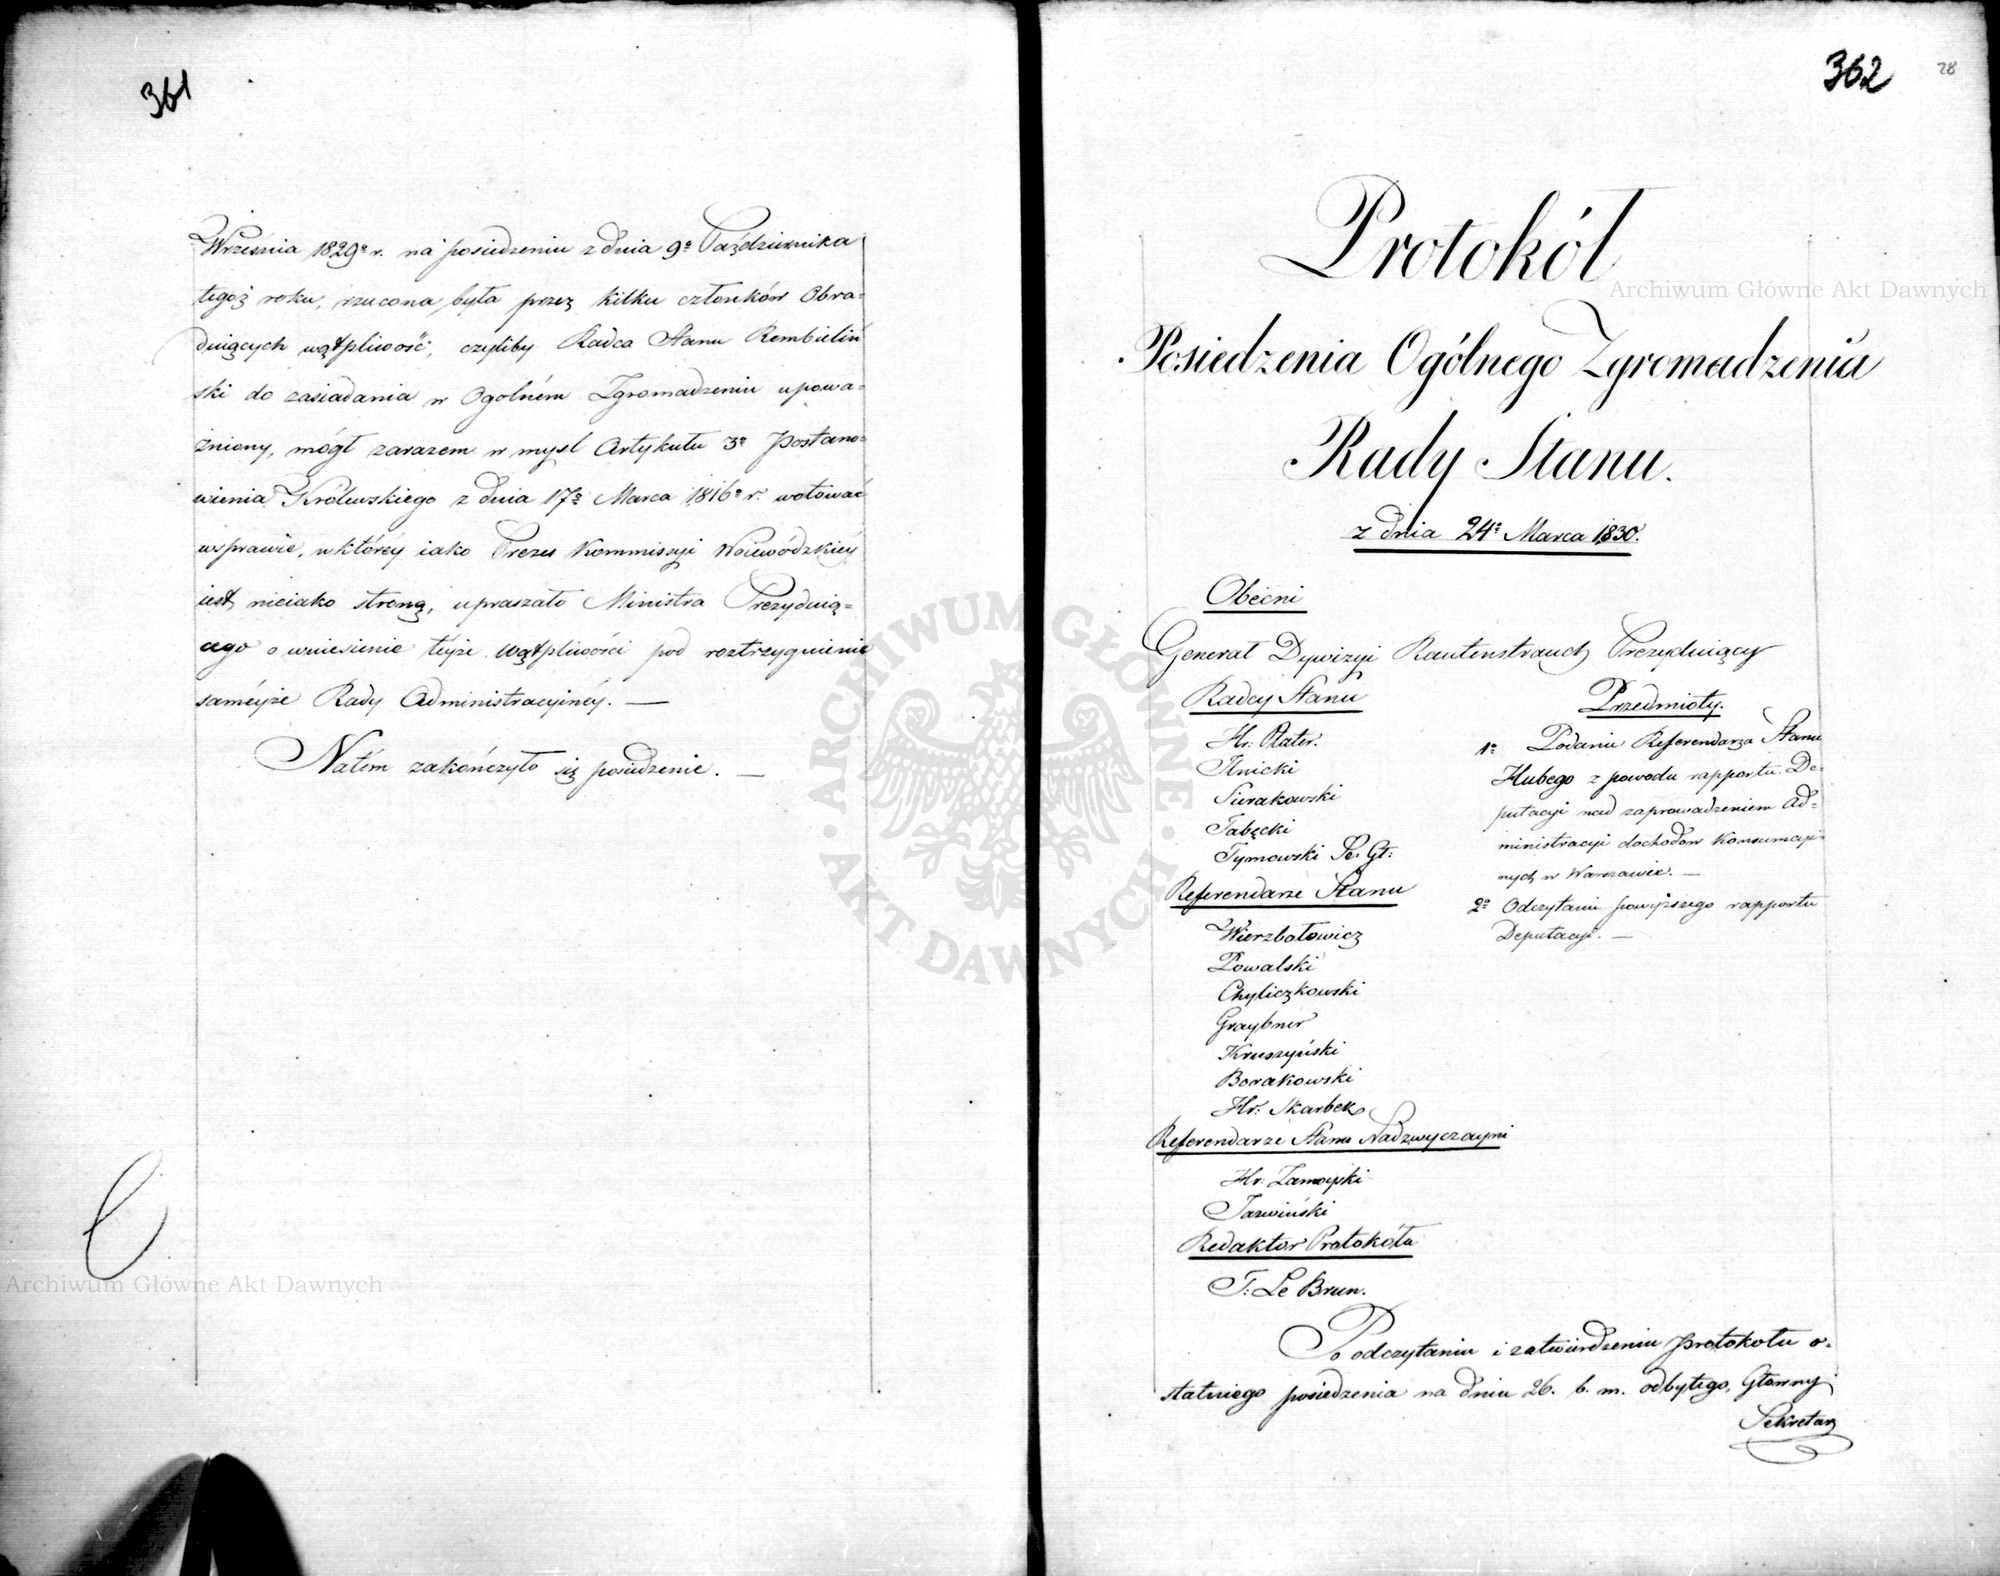 361
Września 1829º r. na posiedzeniu z dnia 9º Października
tegoż roku, rzucona była przez kilku członków Obra-
duiących wątpliwość, czyliby Radca Stanu Rembieliń
ski do zasiadania w Ogolném Zgromadzeniu upowa-
żniony, mógł zarazem w mysl Artykułu 3º Postano-
wienia Królewskiego z dnia 17º Marca 1816º r. wotować
w sprawie, w któréy iako Prezes Kommissyi Woiewódzkiéy
iest nieiako stroną, upraszało Ministra Prezyduią-
cego o wniesienie téyże wątpliwości pod roztrzygnienie
saméyże Rady Administracyinéy. —
Na tém zakończyło się posiedzenie. —
362
28
Protokół
Posiedzenia Ogólnego Zgromadzenia
Rady Stanu.
z dnia 24º Marca 1830.
Obecni
Generał Dywizyi Rautenstrauch Prezyduiący
Radcy Stanu
Hr: Plater.
Ilnicki
Sierakowski
Tabęcki
Tymowski Se: Gł:
Referendarze Stanu
Wierzbołowicz
Powalski
Chyliczkowski
Graybner
Kruszyński
Borakowski
Hr: Skarbek
Referendarze Stanu Nadzwyczayni
Hr: Zamoyski
Jarwiński
Redaktor Protokółu
T: Le Brun.
Przedmioty.
1º Podanie Referendarza Stanu
Hubego z powodu rapportu De-
putacyi nad zaprowadzeniem Ad-
ministracyi dochodów Konsumcyi-
nych w Warszawie. —
2º Odczytanie powyższego rapportu
Deputacyi. —
Po odczytaniu i zatwierdzeniu protokołu o-
statniego posiedzenia na dniu 26. b. m. odbytego, Głowny
Sekretarz
Archiwum Główne Akt Dawnych
Archiwum Główne Akt Dawnych
ARCHIWUM GŁÓWNE · AKT DAWNYCH ·